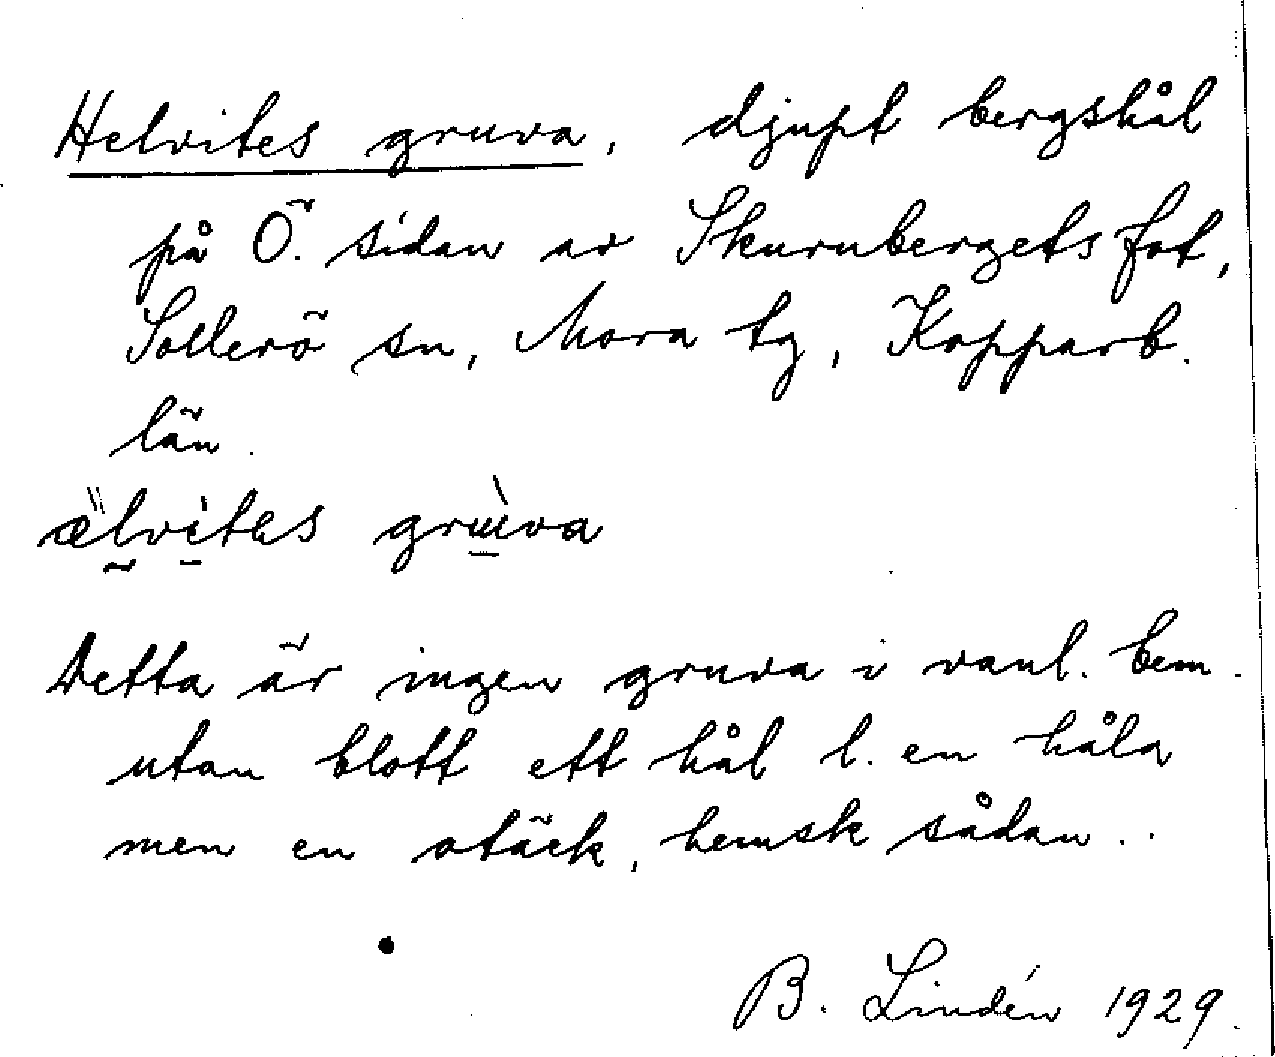 Helvites gruva, djupt bergshål
på Ö. sidan av Skurubergets fot,
Sollerö sn, Mora tg, Kopparb.
län.
ælvites gruva
Detta är ingen gruva i vanl. bem.
utan blott ett hål l. en håla
men en otäck, hemsk sådan..
B. Lindén 1929.